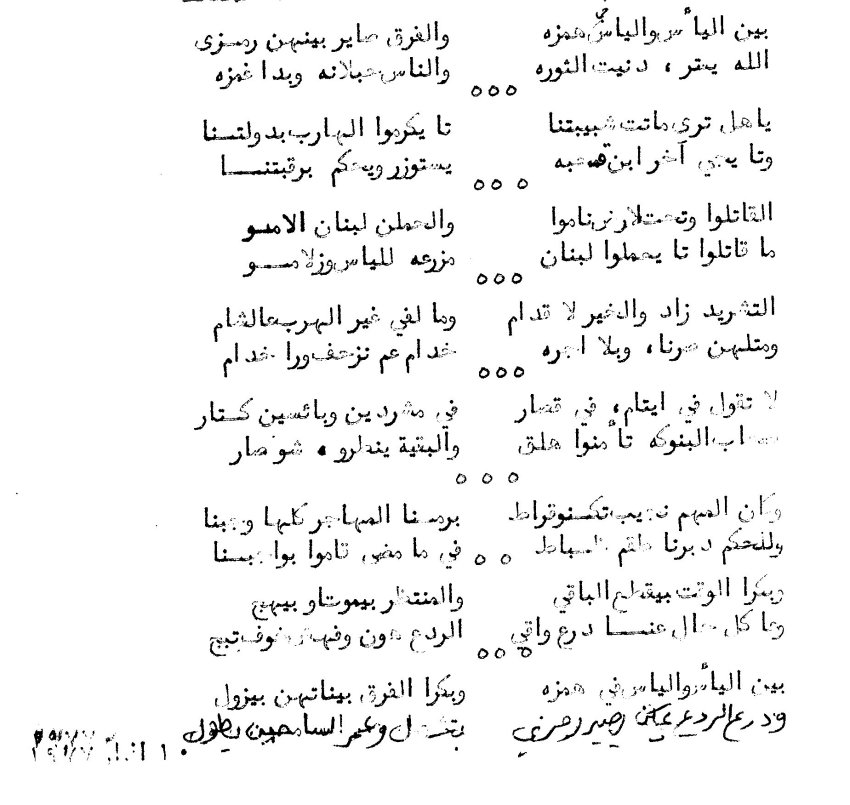 بين اليأس والياس في همزه والفرق صاير بينهن رمزى
الله يستر ، دنيت الثوره والناس حبلانه وبدا غمزه
ياهل ترى ماتت شبيبتنا تا يكرموا الهارب بدولتنا
وتا يجي آخر ابن قحبه يستوزر ويحكم برقبتنا
القاتلوا وتحت لارض ناموا والحملن لبنان الامو
ما قاتلوا تا يعملوا لبنان مزرعه للياس وزلامو
التشريد زاد والخير لا قدام وما لفي غير الهرب عالشام
ومتلهن صرنا، وبلا اجره خدام عم نزحف ورا خدام
لا تقول في ايتام، في قصار في مشردين وبائسين كتار
البنوكه تأمنوا هلق والبقية ينطرو ، شو صار
وكان المهم نجيب تكنوقراط برمنا المهاجر كلها وجبنا
وللحكم دبرنا طقم في ما مضى قاموا بواجبنا
وبكرا الوقت بيقطع الباقي والمنتظر بيموت او بيهج
وما كل حال عنا درع واقي الردع هون
بين اليأس والياس في همزه وبكرا الفرق بيناتهن بيزول
ودرع الردع يصير رمزي وعمر السامعين يطول